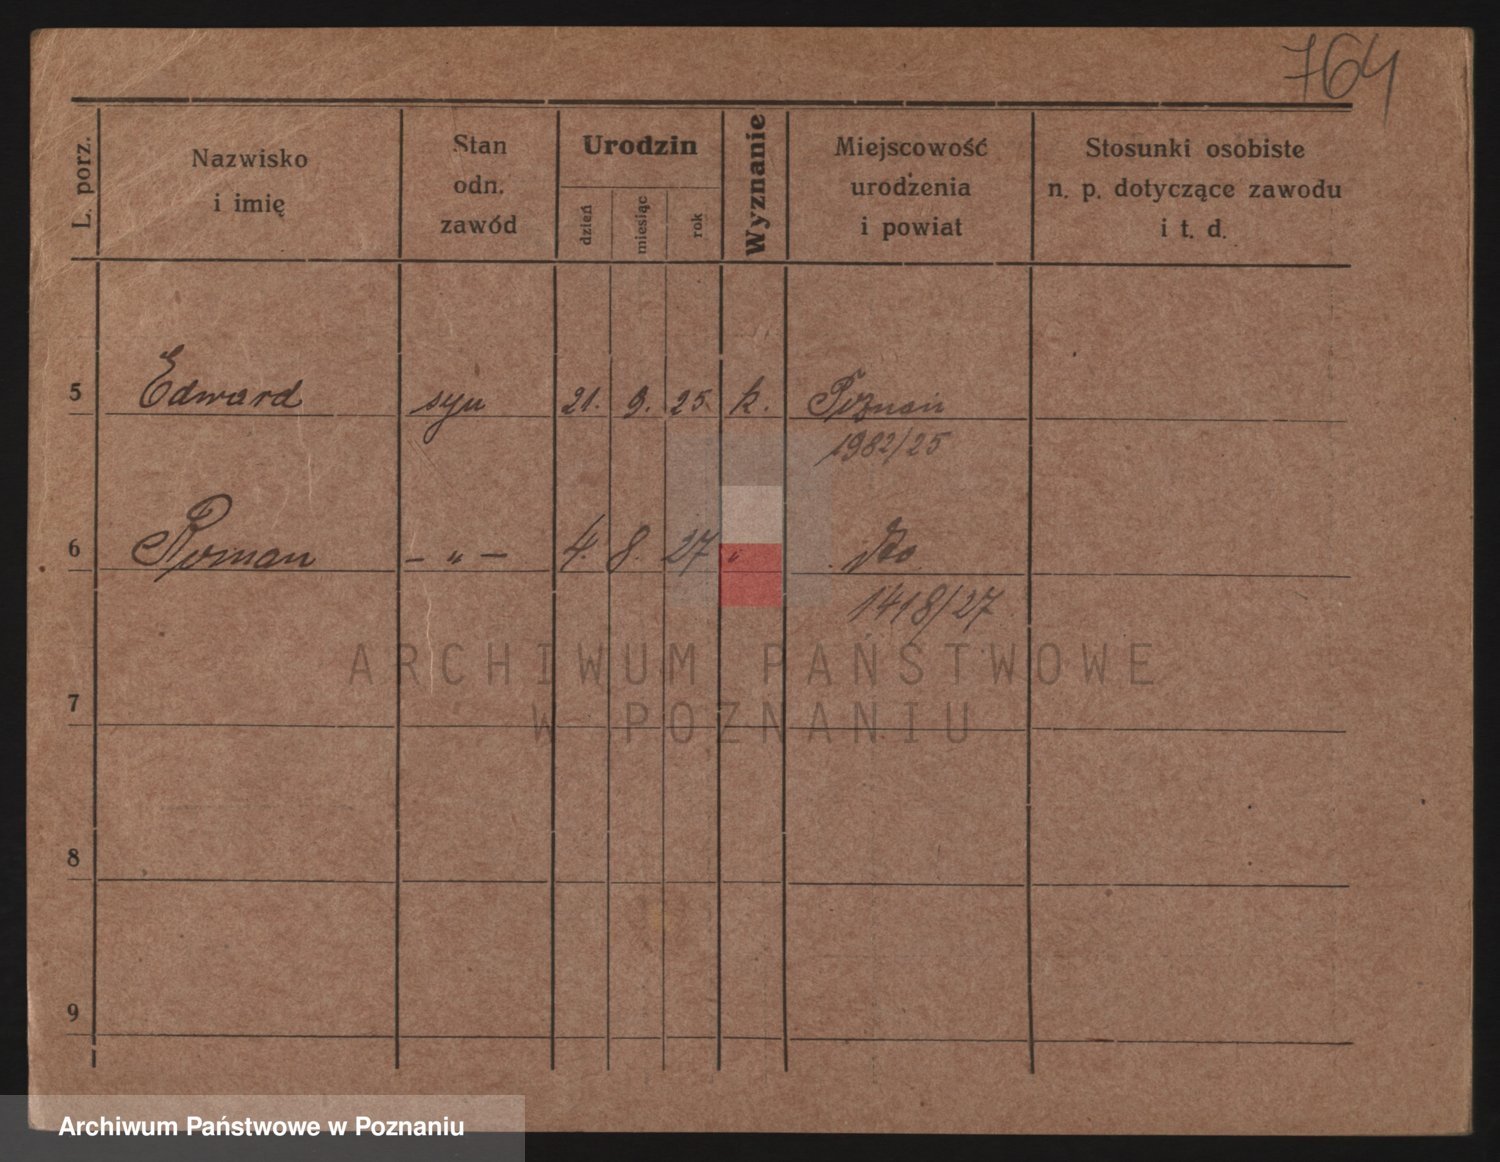 764
L. porz.
Nazwisko
i imię
Stan
odn.
zawód
Urodzin
dzień
miesiąc
rok
Wyznanie
Miejscowość
urodzenia
i powiat
Stosunki osobiste
n. p. dotyczące zawodu
i t. d.
5 Edward syn 21. 9. 25. k. Poznań
1982/25
6 Roman – " – 4. 8. 27 "
1418/27
ARCHIWUM PAŃSTWOWE
W POZNANIU
7
8
9
Archiwum Państwowe w Poznaniu